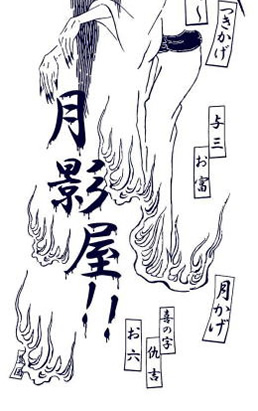 つきかげ
与三
お富
月影屋!!
月かげ
喜の字
仇吉
お六